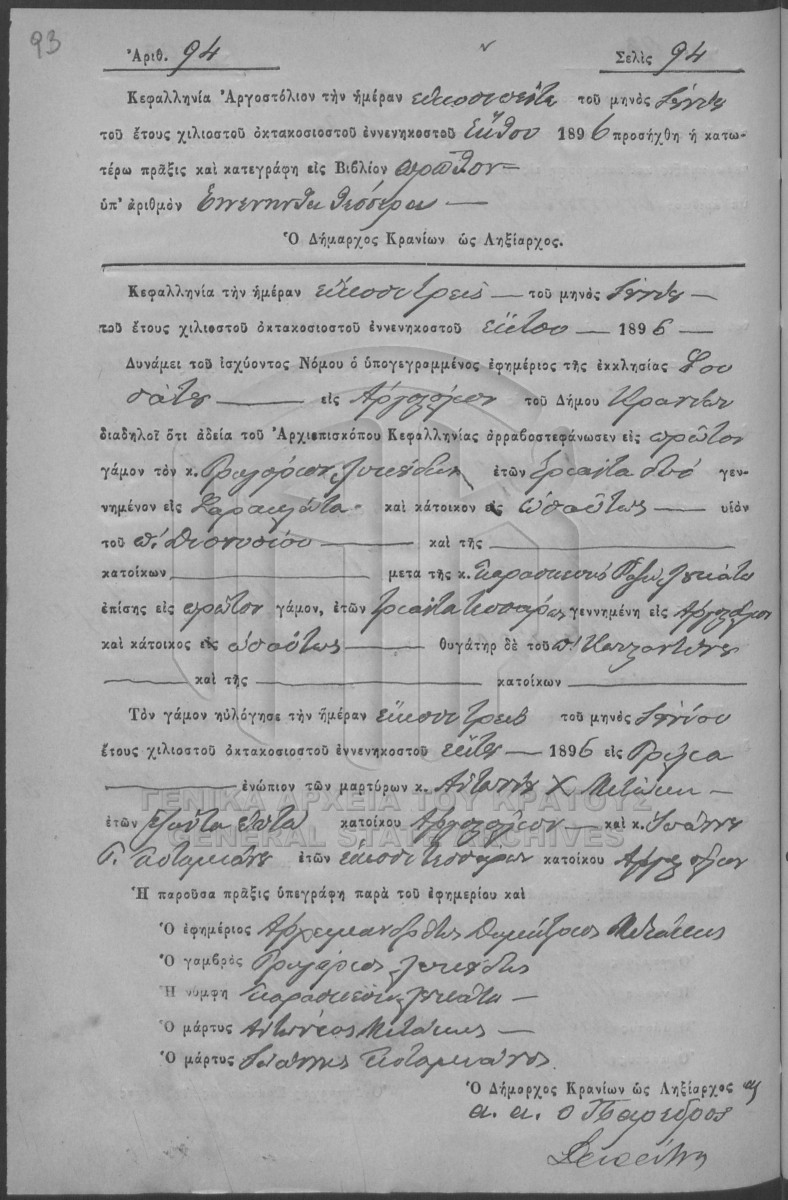 93
Ἀριθ. 94
Σελὶς 94
Κεφαλληνία Ἀργοστόλιον τὴν ἡμέραν εἰκοστὴν πέμπτην τοῦ μηνὸς
τοῦ ἔτους χιλιοστοῦ ὀκτακοσιοστοῦ ἐννενηκοστοῦ ἕκτου 1896 προσήχθη ἡ κατω-
τέρω πρᾶξις καὶ κατεγράφη εἰς Βιβλίον πρῶτον
ὑπ' ἀριθμὸν Ἐννενήντα τέσσερα
Ὁ Δήμαρχος Κρανίων ὡς Ληξίαρχος.
Κεφαλληνία τὴν ἡμέραν εἴκοσι τρεῖς τοῦ μηνὸς
τοῦ ἔτους χιλιοστοῦ ὀκτακοσιοστοῦ ἐννενηκοστοῦ ἕκτου 1896
Δυνάμει τοῦ ἰσχύοντος Νόμου ὁ ὑπογεγραμμένος ἐφημέριος τῆς ἐκκλησίας
εἰς Ἀργοστόλιον τοῦ Δήμου Κρανίων
διαδηλοῖ ὅτι ἀδεία τοῦ Ἀρχιεπισκόπου Κεφαλληνίας ἀρραβοστεφάνωσεν εἰς πρῶτον
γάμον τὸν κ. Γρηγόριον ἐτῶν τριάντα δύο γεν-
νημένον εἰς καὶ κάτοικον εἰς ὡσαύτως υἱὸν
τοῦ π. Διονυσίου καὶ τῆς
κατοίκων μετα τῆς κ. Παρασκευῆς
ἐπίσης εἰς πρῶτον γάμον, ἐτῶν τριάντα τεσσάρων γεννημένη εἰς Ἀργοστόλιον
καὶ κάτοικος εἰς ὡσαύτως θυγάτηρ δὲ τοῦ π. Κωνσταντίνου
καὶ τῆς κατοίκων
Τὸν γάμον ηὐλόγησε τὴν ἡμέραν εἴκοσι τρεῖς τοῦ μηνὸς
ἔτους χιλιοστοῦ ὀκτακοσιοστοῦ ἐννενηκοστοῦ ἕκτου 1896 εἰς
ἐνώπιον τῶν μαρτύρων κ. Ἀντωνίου Χ Μεταξᾶ
ἐτῶν ἑξῆντα ἑπτὰ κατοίκου Ἀργοστολίου καὶ κ. Ἰωάννου
Γ. Ποταμιάνου ἐτῶν εἴκοσι τεσσάρων κατοίκου Ἀργοστολίου
Ἡ παροῦσα πρᾶξις ὑπεγράφη παρὰ τοῦ ἐφημερίου καὶ
Ὁ ἐφημέριος Ἀρχιμανδρίτης Δημήτριος
Ὁ γαμβρὸς Γρηγόριος
Ἡ νύμφη Παρασκευὴ
Ὁ μάρτυς Ἀντώνιος
Ὁ μάρτυς Ἰωάννης Ποταμιάνος
Ὁ Δήμαρχος Κρανίων ὡς Ληξίαρχος
α. α. ὁ Πάρεδρος
ΓΕΝΙΚΑ ΑΡΧΕΙΑ ΤΟΥ ΚΡΑΤΟΥΣ
GENERAL STATE ARCHIVES